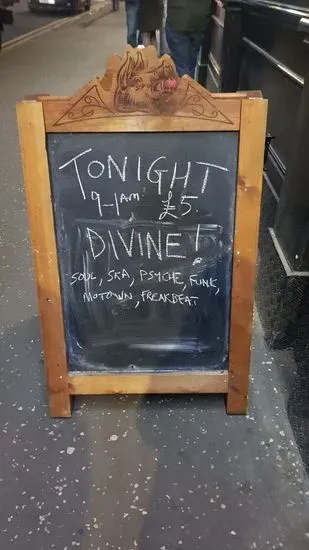 TONIGHT
9-1AM £5.
DIVINE!
SOUL, SKA, PSYCHE, FUNK,
MOTOWN, FREAKBEAT